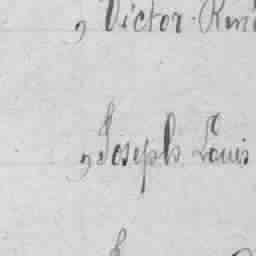 " Victor
" Joseph Louis